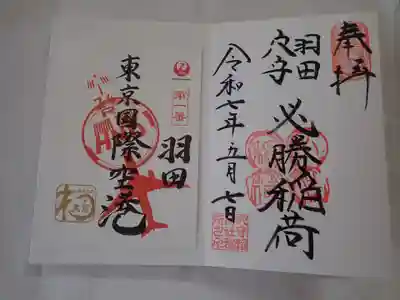 奉拝
羽田
穴守
必勝稲荷
令和七年五月七日
第一番
羽田
東京國際空港